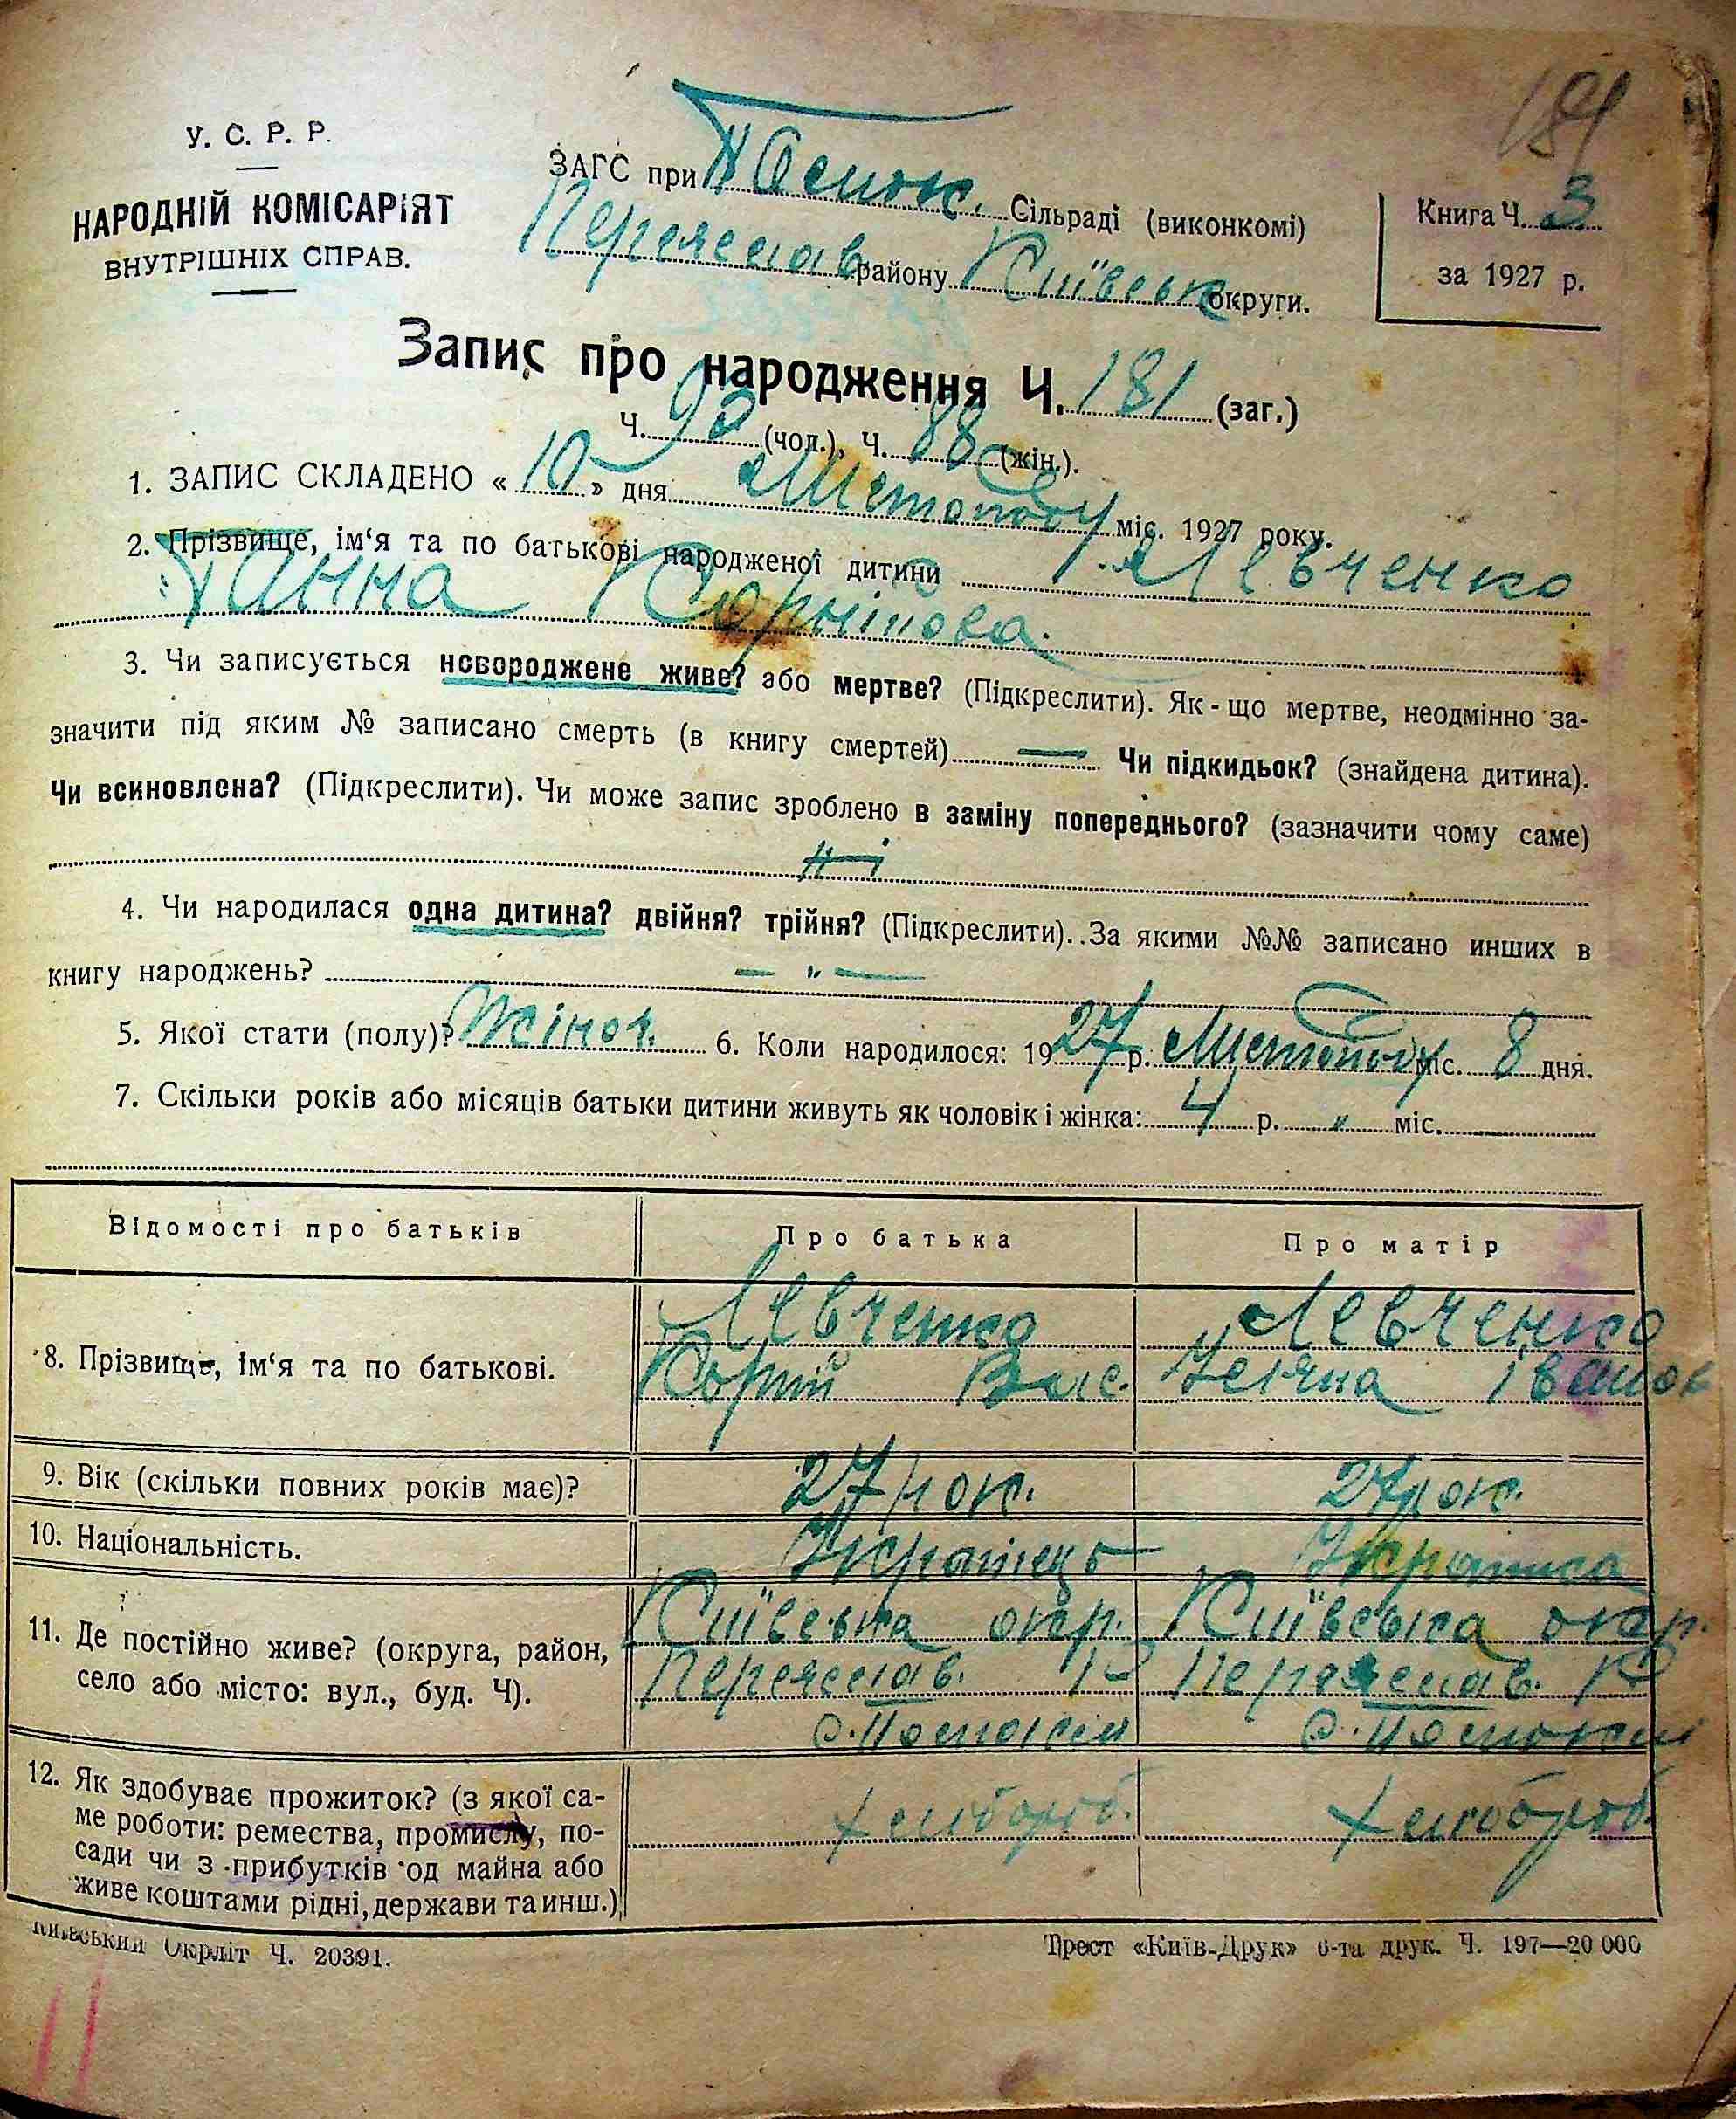 181
У. С. Р. Р.
НАРОДНІЙ КОМІСАРІЯТ
ВНУТРІШНІХ СПРАВ.
ЗАГС при Сільраді (виконкомі)
Переяслав району Київськ округи.
Книга Ч. 3
за 1927 р.
Запис про народження Ч. 181 (заг.)
Ч. 93 (чол.), Ч. 88 (жін.).
1. ЗАПИС СКЛАДЕНО « 10 » дня Листопаду міс. 1927 року.
2. Прізвище, ім‘я та по батькові народженої дитини Левченко
Ганна
3. Чи записується новороджене живе? або мертве? (Підкреслити). Як-що мертве, неодмінно за-
значити під яким № записано смерть (в книгу смертей) — Чи підкидьок? (знайдена дитина).
Чи всиновлена? (Підкреслити). Чи може запис зроблено в заміну попереднього? (зазначити чому саме)
Ні
4. Чи народилася одна дитина? двійня? трійня? (Підкреслити). За якими №№ записано инших в
книгу народжень? — „ —
5. Якої стати (полу)? Жіноч. 6. Коли народилося: 1927 р. Листопаду міс. 8 дня.
7. Скільки років або місяців батьки дитини живуть як чоловік і жінка: 4 р. „ міс.
Відомості про батьків Про батька Про матір
8. Прізвище, ім‘я та по батькові.
Левченко Левченко
Корній Вас. Уляна Іванов
9. Вік (скільки повних років має)? 27 рок. 27 рок.
10. Національність. Українець Українка
11. Де постійно живе? (округа, район,
село або місто: вул., буд. Ч).
Київська окр. Київська окр.
Переяслав. Р Переяслав. Р
12. Як здобуває прожиток? (з якої са-
ме роботи: ремества, промислу, по-
сади чи з прибутків од майна або
живе коштами рідні, держави та инш.)
хлібороб. хлібороб.
Київський Окрліт Ч. 20391.
Трест «Київ-Друк» 6-та друк. Ч. 197—20 000